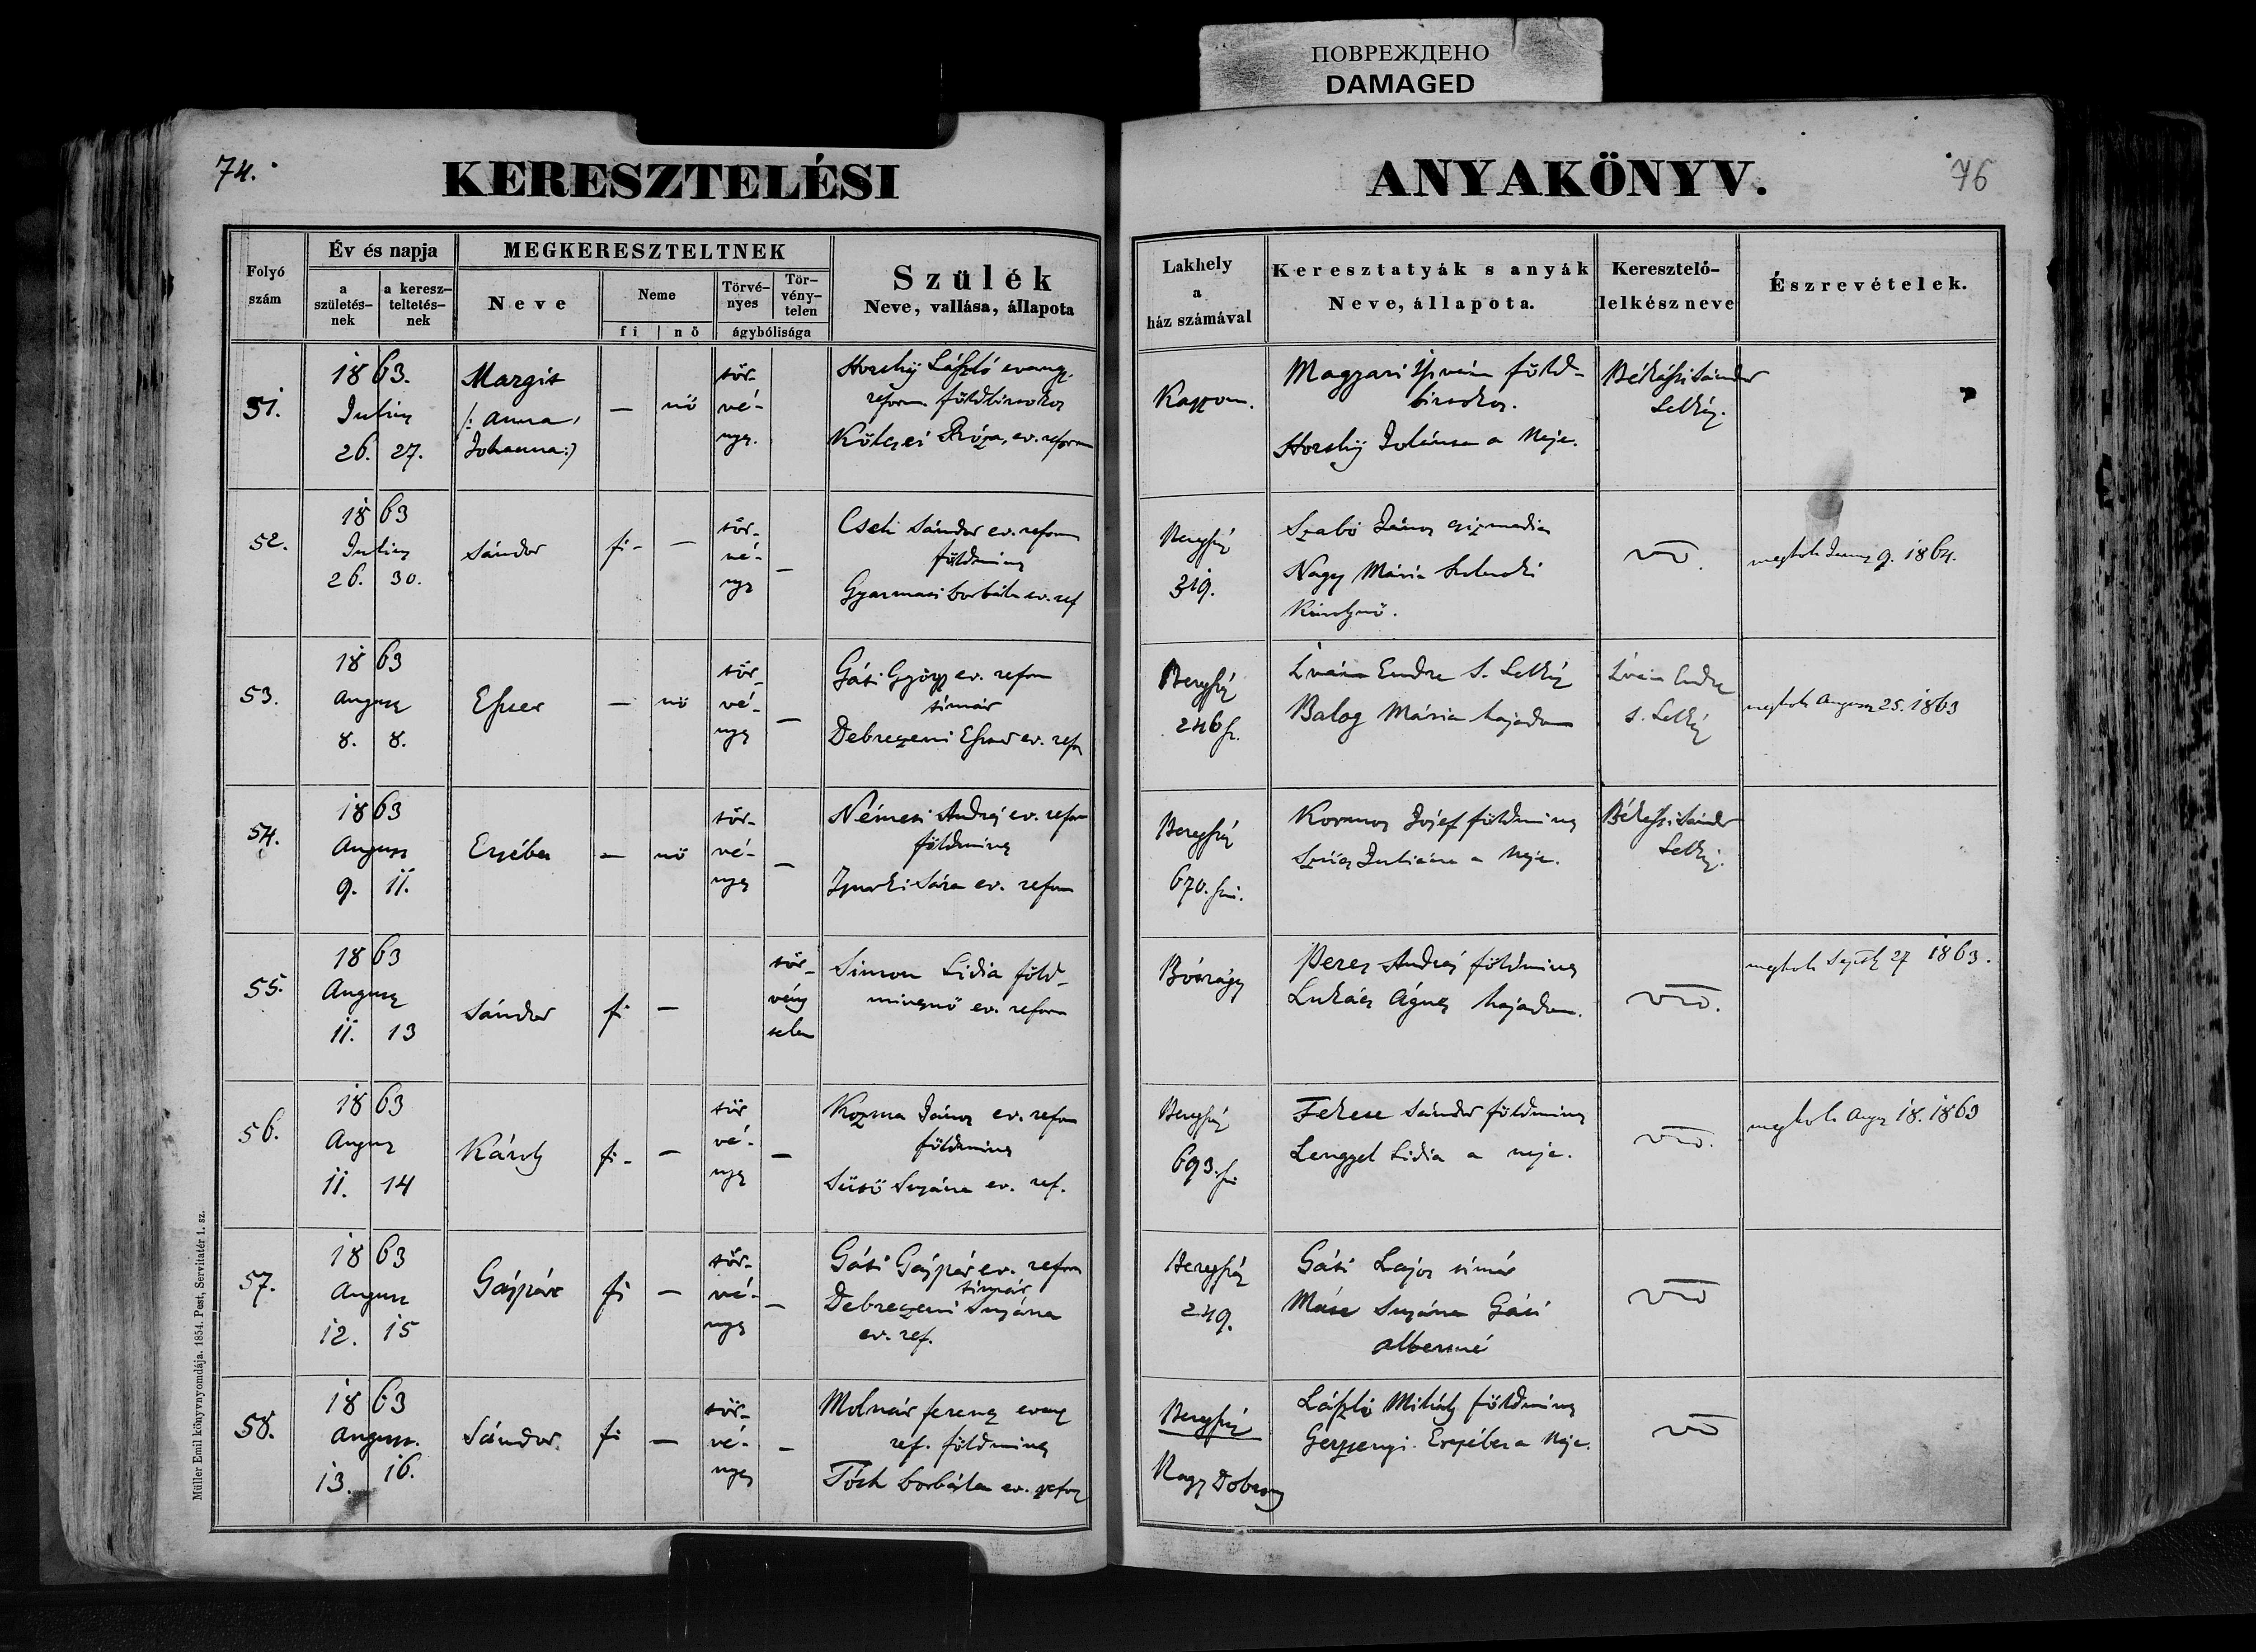 ПОВРЕЖДЕНО
DAMAGED
74.
KERESZTELÉSI
ANYAKÖNYV.
76
Folyó szám
Év és napja
a születés-nek
a keresz-teltetés-nek
MEGKERESZTELTNEK
Neve
Neme
fi | nő
Törvé-nyes
Tör-vény-telen
ágybólisága
Szülék
Neve, vallása, állapota
Lakhely
a
ház számával
Keresztatyák s anyák
Neve, állapota.
Keresztelő-
lelkész neve
Észrevételek.
51.
1863.
Julius
26. 27.
Margit
/: Anna,
Johanna:/
— nő
tör-
vé-
nyes.
László evang.
reform. földbirtokos
Kölcsei Róza, ev. reform
Kaszon.
Magyari István föld-
birtokos.
a Neje.
Békássi Sándor
Lelkész.
52.
1863
Julius
26. 30.
Sándor
fi- —
tör-
vé-
nyes
—
Cseti Sándor ev. reform
földmives
Gyarmati Borbála ev. ref
Beregszász
319.
Szabó János csizmadia
Nagy Mária
Károlynő.
meghalt 9. 1864.
53.
1863
August
8. 8.
Eszter
— nő
tör-
vé-
nyes
—
Gáti György ev. reform
timár
Debreczeni Eszter ev. refor
Beregszász
246 sz.
Iván Endre S. Lelkész
Balog Mária hajadon
Iván Endre
s. Lelkész
meghalt August 25. 1863
54.
1863
August
9. 11.
Erzsébet
— nő
tör-
vé-
nyes
—
Németi András ev. reform
földmives
Sára ev. reform
Beregszász
670. szá.
Kormos József földmives
Szűcs Juliána a Neje.
Békássi Sándor
Lelkész.
55.
1863
August
11. 13
Sándor
fi —
tör-
vény
telen
Simon Lidia föld-
mivesnő ev. reform
Bótrágy
Peres András földmives
Lukács Ágnes hajadon.
meghalt Sept 27 1863.
56.
1863
August
11. 14
Károly
fi- —
tör
vé-
nyes
—
Kozma János ev. reform
földmives
Sütő Susána ev. ref.
Beregszász
693. szá
Fekete Sándor földmives
Lengyel Lidia a neje.
meghalt Aug 18. 1863
57.
1863
August
12. 15
Gáspár
fi —
tör-
vé-
nyes
—
Gáti Gáspár ev. reform
timár
Debreczeni Susána
ev. ref.
Beregszász
249.
Gáti Lajos timár
Máté Susána Gáti
Albertné
58.
1863
August.
13. 16.
Sándor.
fi —
tör-
vé-
nyes
—
Molnár Ferencz evang
ref. földmives
Tóth Borbála ev. refor
Beregszász
Nagy Dobrony
László Mihály földmives
Gerzsenyi Erzsébet a Neje.
Müller Emil könyvnyomdája. 1854. Pest, Servitatér 1. sz.